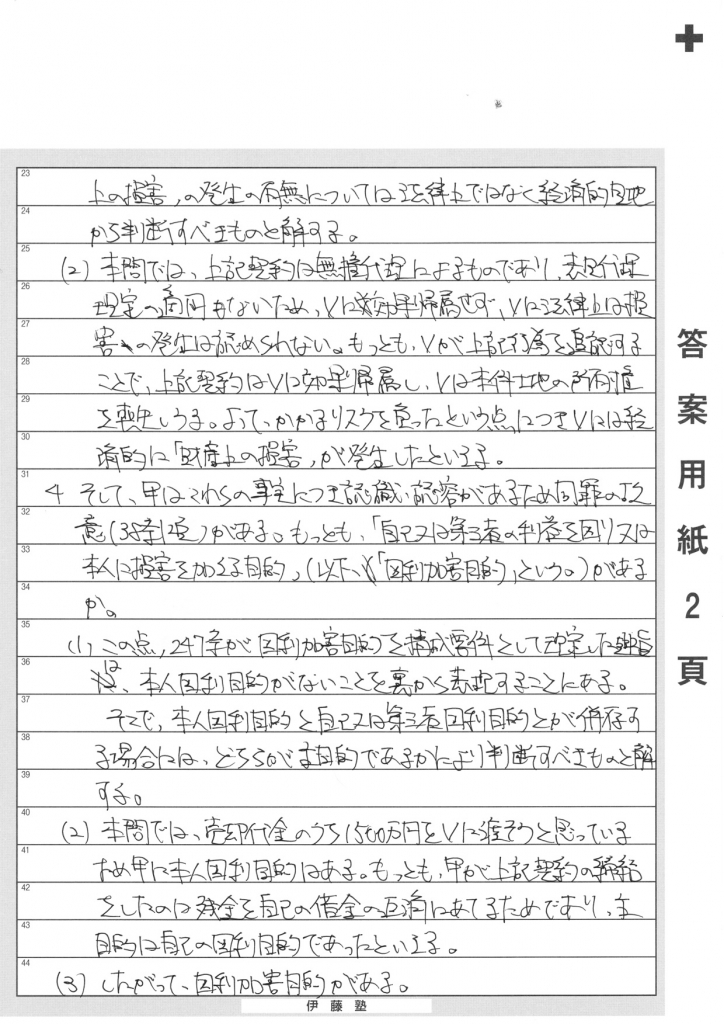 23 上の損害」の発生の有無については法律上ではなく経済的見地
24 から判断すべきものと解する。
25 (2) 本問では、上記契約は無権代理によるものであり、表見代理
26 規定の適用もないため、Vに効果帰属せず、Vに法律上は損
27 害の発生は認められない。もっとも、Vが上記行為を追認する
28 ことで、上記契約はVに効果帰属し、Vは本件土地の所有権
29 を喪失しうる。よって、かかるリスクを負ったという点につきVには経
30 済的に「財産上の損害」が発生したといえる。
31 4 そして、甲はこれらの事実につき認識・認容があるため同罪の故
32 意(38条1項)がある。もっとも、「自己又は第三者の利益を図り又は
33 本人に損害を加える目的」(以下、「図利加害目的」という。)がある
34 か。
35 (1) この点、247条が図利加害目的を構成要件として規定した趣旨
36 は、本人図利目的がないことを裏から表現することにある。
37 そこで、本人図利目的と自己又は第三者図利目的とが併存す
38 る場合には、どちらが主目的であるかにより判断すべきものと解
39 する。
40 (2) 本問では、売却代金のうち1500万円をVに渡そうと思っている
41 ため甲に本人図利目的はある。もっとも、甲が上記契約の締結
42 をしたのは残金を自己の借金の返済にあてるためであり、主
43 目的は自己の図利目的であったといえる。
44 (3) したがって、図利加害目的がある。
伊藤塾
答案用紙2頁